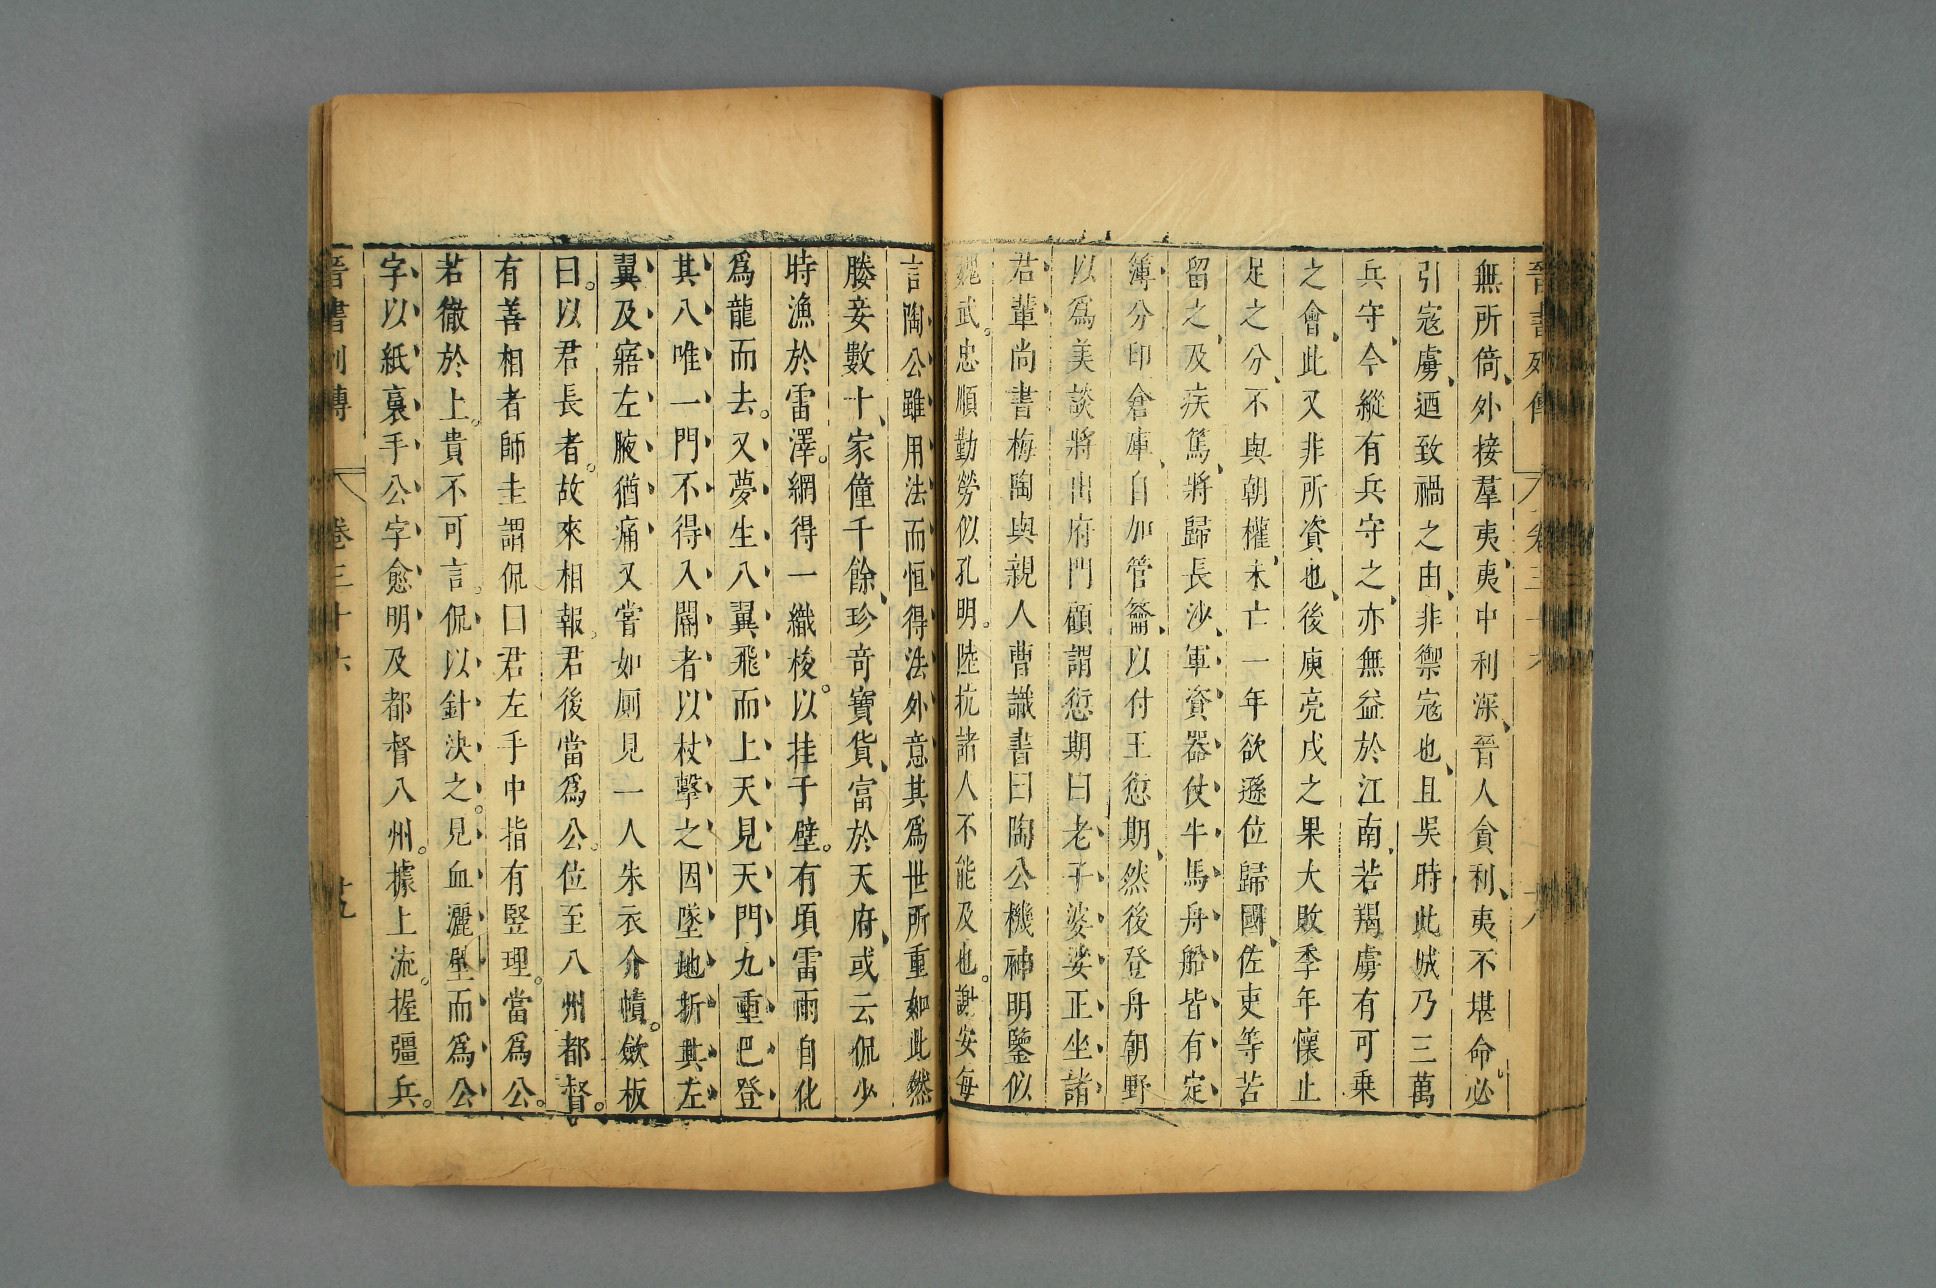 晉書列傳 卷三十六 十八
無所倚外接羣夷夷中利深晉人貪利夷不堪命必
引寇虜迺致禍之由非禦寇也且吳時此城乃三萬
兵守今縱有兵守之亦無益於江南若羯虜有可乗
之會此又非所資也後庾亮戍之果大敗季年懷止
足之分不與朝權未亡一年欲遜位歸國佐吏等苦
留之及疾篤將歸長沙軍資器仗牛馬舟船皆有定
簿分印倉庫自加管籥以付王愆期然後登舟朝野
以爲美談將出府門顧謂愆期曰老子婆娑正坐諸
君輩尚書梅陶與親人曹識書曰陶公機神明鑒似
魏武。忠順勤勞似孔明。陸抗諸人不能及也。謝安每
言陶公雖用法而恒得法外意其爲世所重如此然
媵妾數十家僮千餘珍奇寶貨富於天府或云侃少
時漁於雷澤。網得一織梭。以挂于壁。有頃雷雨自化
爲龍而去。又夢生八翼飛而上天見天門九重已登
其八唯一門不得入閽者以杖擊之因墜地折其左
翼及寤左腋猶痛又嘗如厠見一人朱衣介幘。歛板
曰。以君長者。故來相報。君後當爲公。位至八州都督。
有善相者師圭謂侃曰君左手中指有竪理。當爲公。
若徹於上。貴不可言。侃以針決之。見血灑壁而爲公
字以紙裛手公字愈明及都督八州。據上流。握彊兵。
晉書列傳 卷三十六 十九